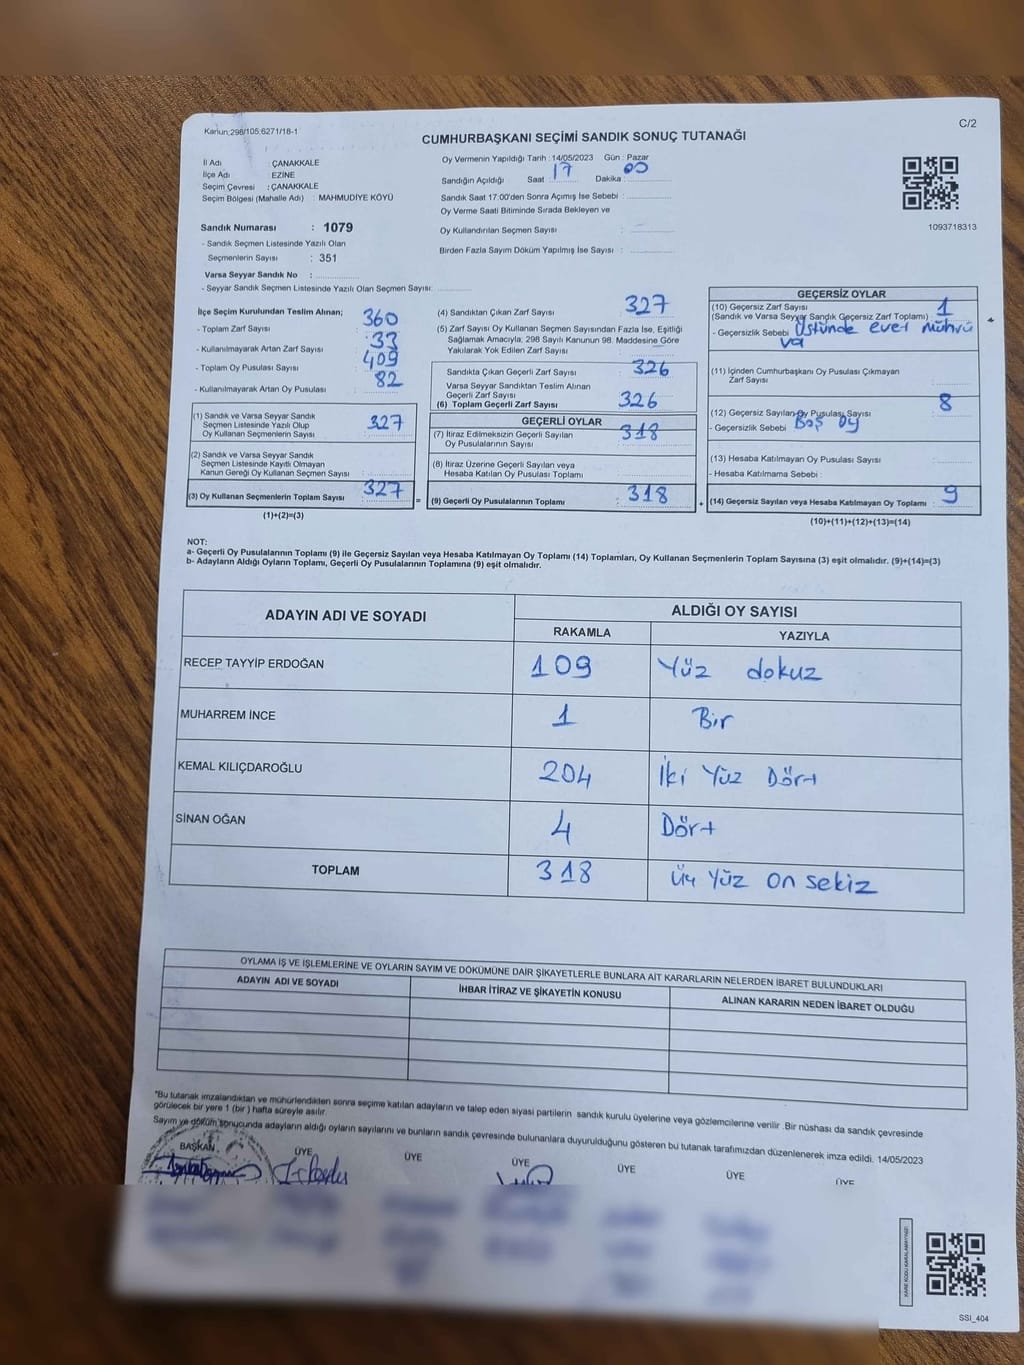 Kanun:298/105;6271/18-1
C/2
CUMHURBAŞKANI SEÇİMİ SANDIK SONUÇ TUTANAĞI
İl Adı : ÇANAKKALE
İlçe Adı : EZİNE
Seçim Çevresi : ÇANAKKALE
Seçim Bölgesi (Mahalle Adı) : MAHMUDİYE KÖYÜ
Oy Vermenin Yapıldığı Tarih : 14/05/2023 Gün : Pazar
Sandığın Açıldığı Saat : 17 Dakika : 00
Sandık Saat 17:00'den Sonra Açımış İse Sebebi :
Oy Verme Saati Bitiminde Sırada Bekleyen ve
Oy Kullandırılan Seçmen Sayısı :
Birden Fazla Sayım Döküm Yapılmış İse Sayısı :
1093718313
Sandık Numarası : 1079
- Sandık Seçmen Listesinde Yazılı Olan
Seçmenlerin Sayısı : 351
Varsa Seyyar Sandık No :
- Seyyar Sandık Seçmen Listesinde Yazılı Olan Seçmen Sayısı:
İlçe Seçim Kurulundan Teslim Alınan;
- Toplam Zarf Sayısı : 360
- Kullanılmayarak Artan Zarf Sayısı : 33
- Toplam Oy Pusulası Sayısı : 409
- Kullanılmayarak Artan Oy Pusulası : 82
(1) Sandık ve Varsa Seyyar Sandık
Seçmen Listesinde Yazılı Olup
Oy Kullanan Seçmenlerin Sayısı : 327
(2) Sandık ve Varsa Seyyar Sandık
Seçmen Listesinde Kayıtlı Olmayan
Kanun Gereği Oy Kullanan Seçmen Sayısı :
(3) Oy Kullanan Seçmenlerin Toplam Sayısı : 327
(1)+(2)=(3)
=
(4) Sandıktan Çıkan Zarf Sayısı : 327
(5) Zarf Sayısı Oy Kullanan Seçmen Sayısından Fazla İse, Eşitliği
Sağlamak Amacıyla, 298 Sayılı Kanunun 98. Maddesine Göre
Yakılarak Yok Edilen Zarf Sayısı :
Sandıkta Çıkan Geçerli Zarf Sayısı : 326
Varsa Seyyar Sandıktan Teslim Alınan
Geçerli Zarf Sayısı :
(6) Toplam Geçerli Zarf Sayısı : 326
GEÇERLİ OYLAR
(7) İtiraz Edilmeksizin Geçerli Sayılan
Oy Pusulalarının Sayısı : 318
(8) İtiraz Üzerine Geçerli Sayılan veya
Hesaba Katılan Oy Pusulası Toplamı :
(9) Geçerli Oy Pusulalarının Toplamı : 318
+
GEÇERSİZ OYLAR
(10) Geçersiz Zarf Sayısı
(Sandık ve Varsa Seyyar Sandık Geçersiz Zarf Toplamı) : 1
- Geçersizlik Sebebi : Üstünde evet mührü
va
(11) İçinden Cumhurbaşkanı Oy Pusulası Çıkmayan
Zarf Sayısı :
(12) Geçersiz Sayılan Oy Pusulası Sayısı : 8
- Geçersizlik Sebebi : Boş oy
(13) Hesaba Katılmayan Oy Pusulası Sayısı :
- Hesaba Katılmama Sebebi :
(14) Geçersiz Sayılan veya Hesaba Katılmayan Oy Toplamı : 9
(10)+(11)+(12)+(13)=(14)
NOT:
a- Geçerli Oy Pusulalarının Toplamı (9) ile Geçersiz Sayılan veya Hesaba Katılmayan Oy Toplamı (14) Toplamları, Oy Kullanan Seçmenlerin Toplam Sayısına (3) eşit olmalıdır. (9)+(14)=(3)
b- Adayların Aldığı Oyların Toplamı, Geçerli Oy Pusulalarının Toplamına (9) eşit olmalıdır.
ADAYIN ADI VE SOYADI ALDIĞI OY SAYISI
RAKAMLA YAZIYLA
RECEP TAYYİP ERDOĞAN 109 Yüz dokuz
MUHARREM İNCE 1 Bir
KEMAL KILIÇDAROĞLU 204 İki Yüz Dört
SİNAN OĞAN 4 Dört
TOPLAM 318 Üç Yüz on sekiz
OYLAMA İŞ VE İŞLEMLERİNE VE OYLARIN SAYIM VE DÖKÜMÜNE DAİR ŞİKAYETLERLE BUNLARA AİT KARARLARIN NELERDEN İBARET BULUNDUKLARI
ADAYIN ADI VE SOYADI İHBAR İTİRAZ VE ŞİKAYETİN KONUSU ALINAN KARARIN NEDEN İBARET OLDUĞU
*Bu tutanak imzalandıktan ve mühürlendikten sonra seçime katılan adayların ve talep eden siyasi partilerin sandık kurulu üyelerine veya gözlemcilerine verilir .Bir nüshası da sandık çevresinde
görülecek bir yere 1 (bir ) hafta süreyle asılır.
Sayım ve döküm sonucunda adayların aldığı oyların sayılarını ve bunların sandık çevresinde bulunanlara duyurulduğunu gösteren bu tutanak tarafımızdan düzenlenerek imza edildi. 14/05/2023
BAŞKAN ÜYE ÜYE ÜYE ÜYE ÜYE ÜYE
KARE KODU KARALAMAYINIZ!
SSI_404